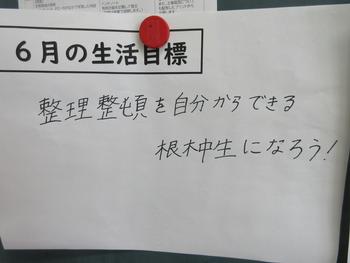 6月の生活目標
整理整頓を自分からできる
根中生になろう!